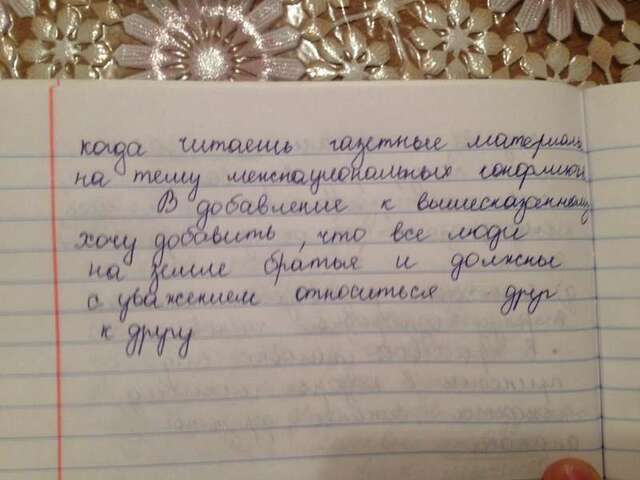 когда читаешь газетные материалы
на тему межнациональных конфликтов
В добавление к вышесказанному
хочу добавить, что все люди
на земле братья и должны
с уважением относиться друг
к другу